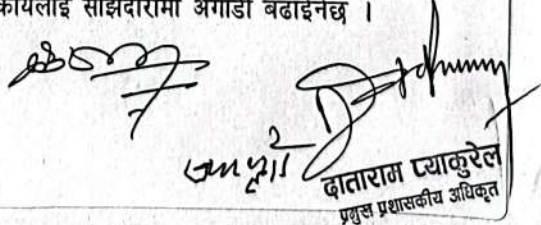 कार्यलाई साझेदारीमा अगाडी बढाईनेछ ।
दाताराम प्याकुरेल
प्रमुख प्रशासकीय अधिकृत